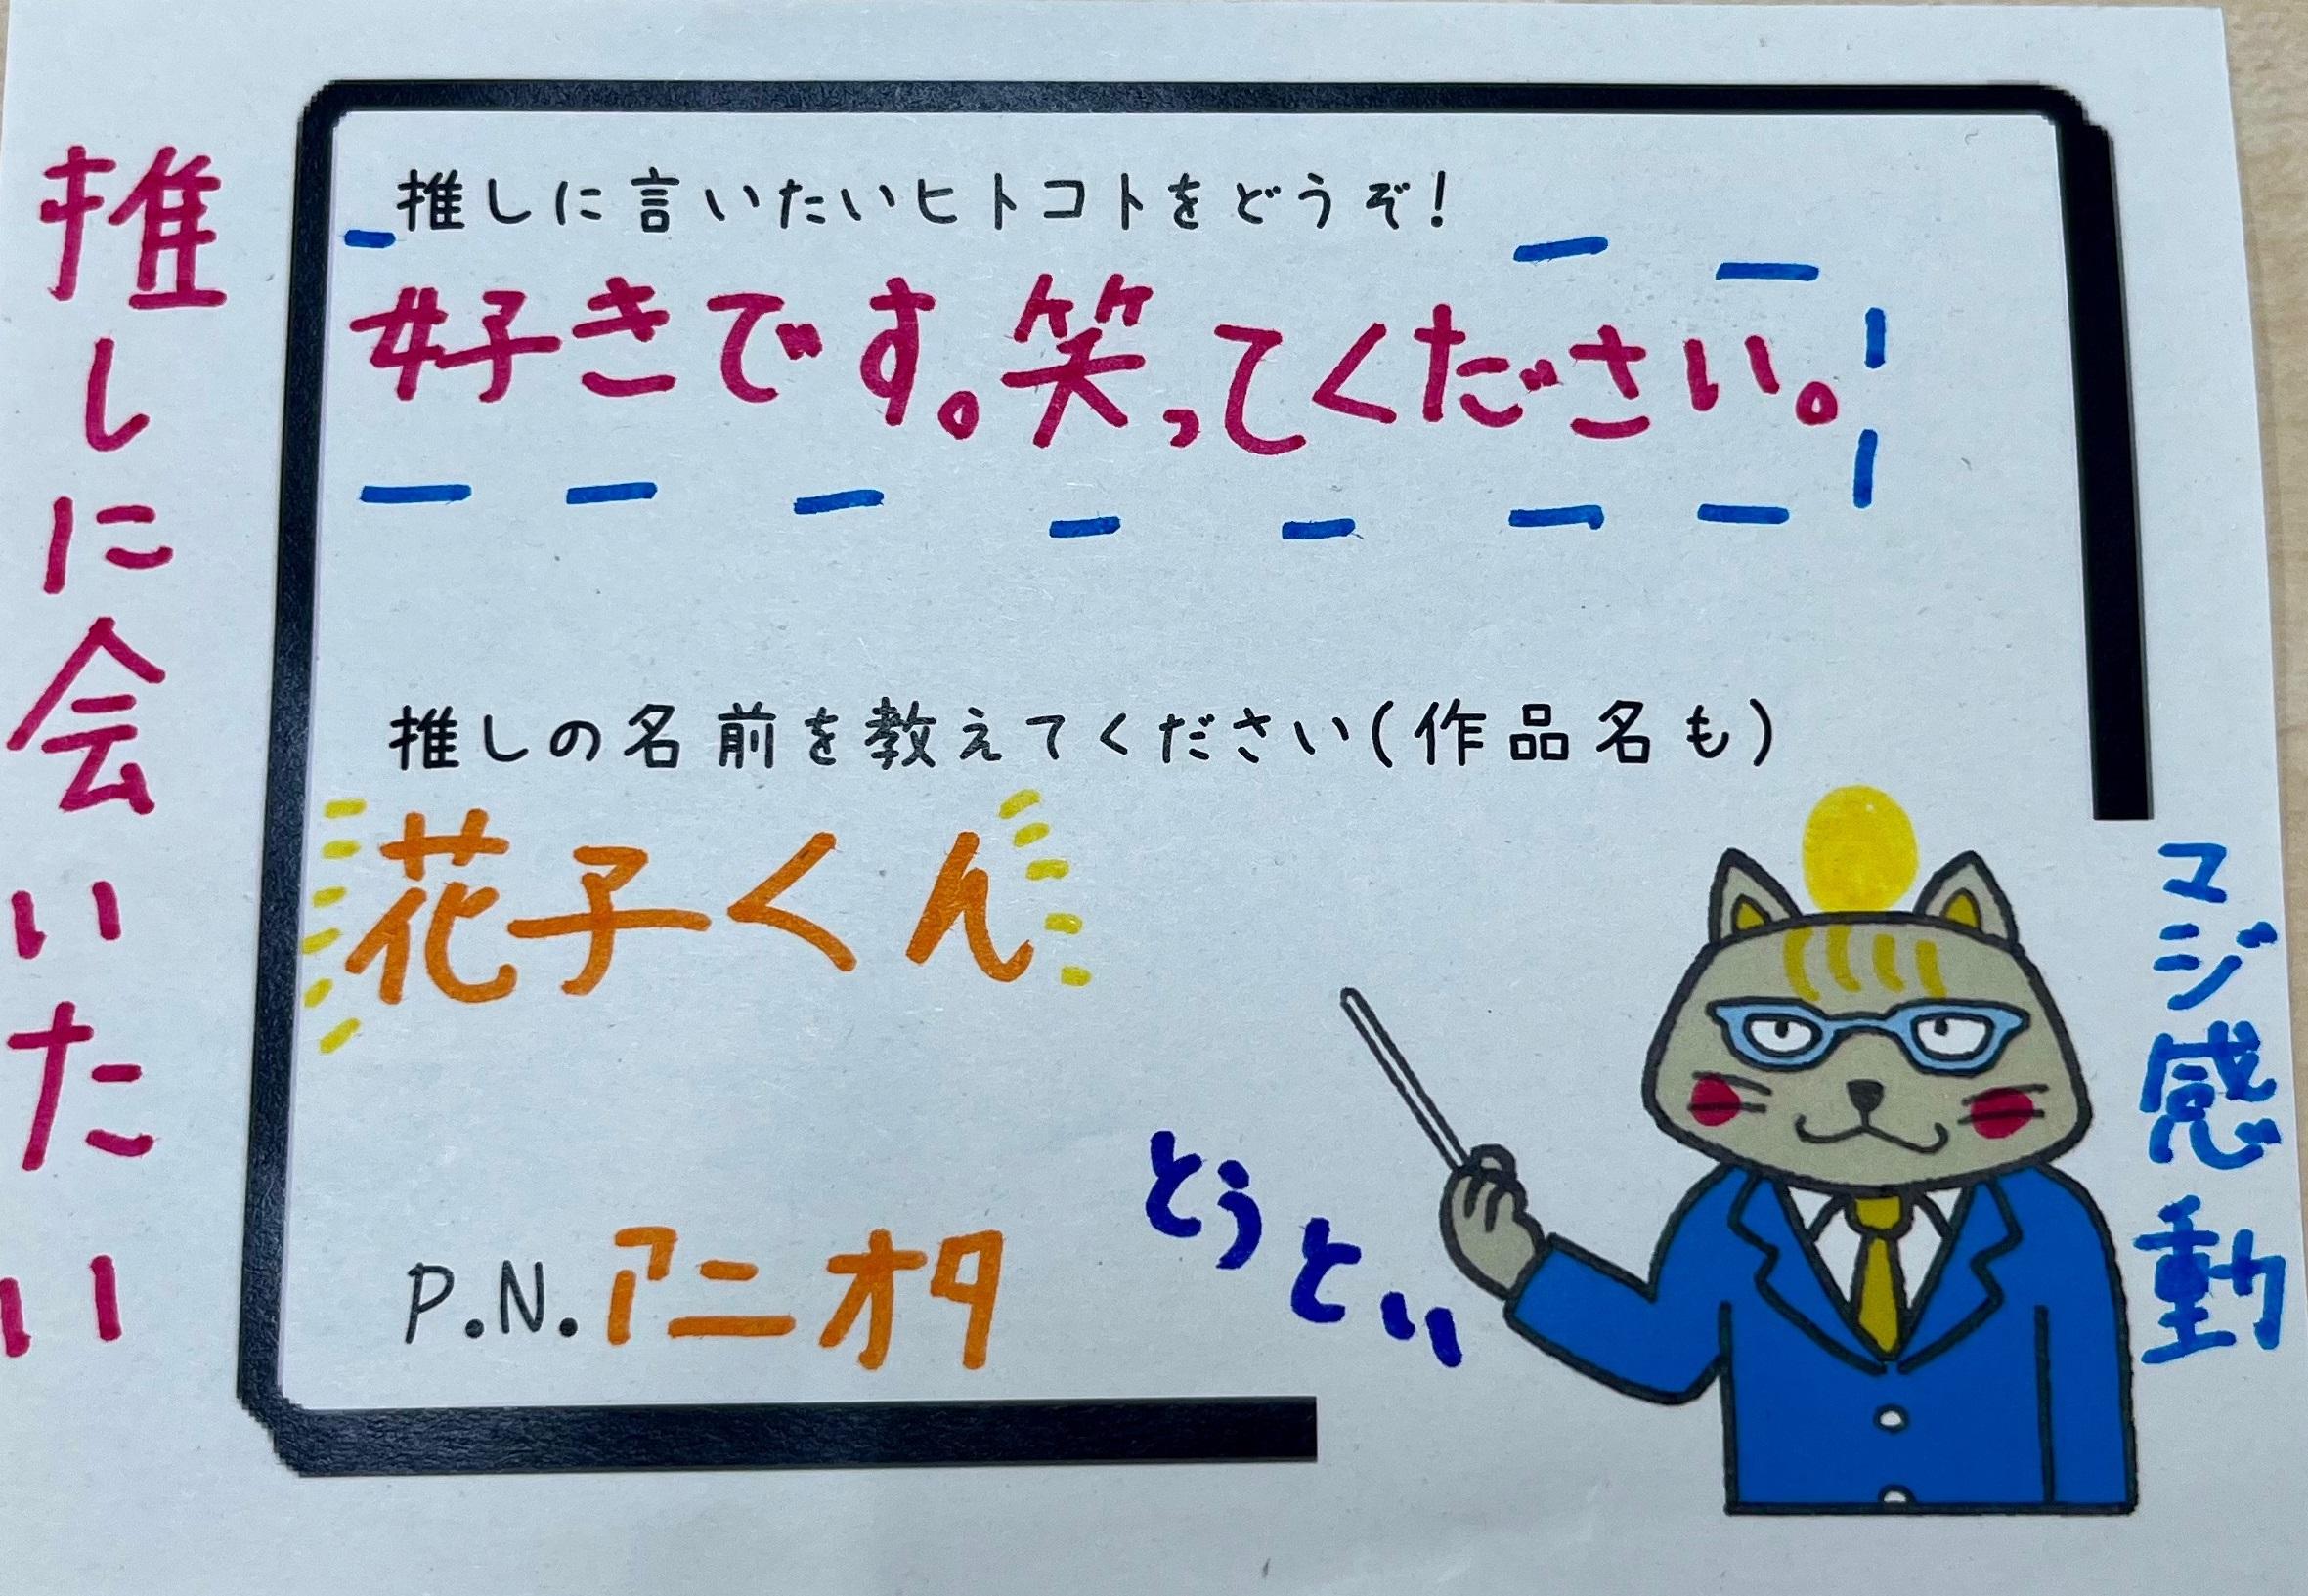 推しに会いたい
推しに言いたいヒトコトをどうぞ!
好きです。笑ってください。
推しの名前を教えてください(作品名も)
花子くん
P.N.アニオタ
とうとい
マジ感動